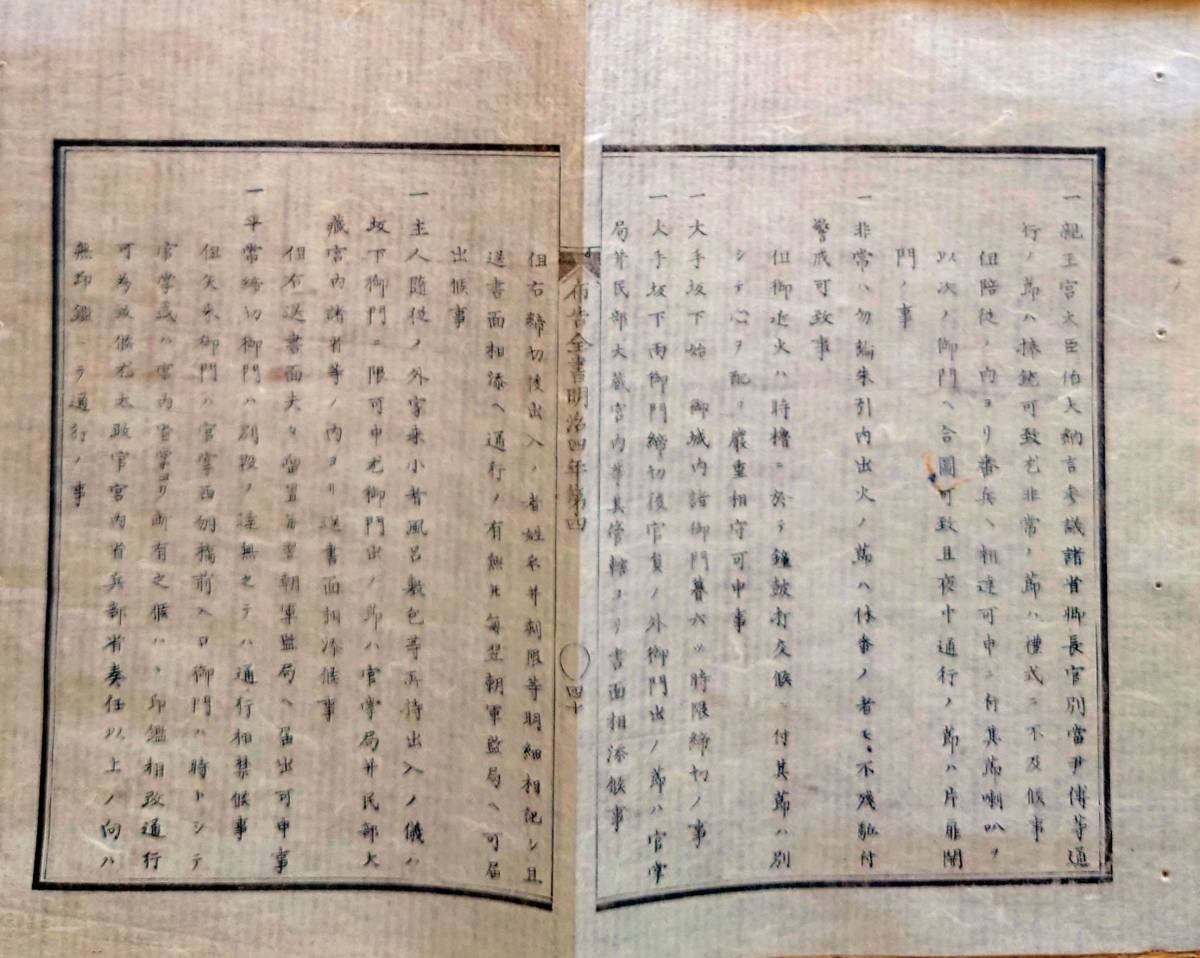 一親王宮大臣伯大納言参議諸省卿長官別當尹傅等通
行ノ節ハ捧銃可致尤非常ノ節ハ禮式ニ不及候事
但陪從ノ內ヨリ番兵ヘ相達可申ニ付其節喇叭ヲ
以次ノ御門ヘ合圖可致且夜中通行ノ節ハ片扉開
門ノ事
一非常ハ勿論朱引內出火ノ節ハ休番ノ者モ不殘駈付
警戒可致事
但御近火ハ時櫓ニ於テ鐘鼓打交候ニ付其節ハ別
シテ心ヲ配リ嚴重相守可申事
一大手坂下始 御城內諸御門暮六ツ時限締切ノ事
一大手坂下兩御門締切後官員ノ外御門出ノ節ハ官掌
局幷民部大藏宮內等其管轄ヨリ書面相添候事
布告全書明治四年第四
四十
但右締切後出入ノ者姓名幷刻限等明細相記シ且
送書面相添ヘ通行ノ有無共每翌朝軍監局ヘ可届
出候事
一主人隨從ノ外家來小者風呂敷包等再持出入ノ儀ハ
坂下御門ニ限可申尤御門出ノ節ハ官掌局幷民部大
藏宮內諸省等ノ內ヨリ送書面相添候事
但右送書面夫々留置每翌朝軍監局ヘ届出可申事
一平常締切御門ハ別段ノ達無之テハ通行相禁候事
但矢来御門ハ官掌西刎橋前入口御門ハ時トシテ
官掌或ハ宮內官掌ヨリ斷有之候ハヽ印鑑相改通行
可為致候尤太政官宮內省兵部省奏任以上ノ向ハ
無印鑑ニテ通行ノ事